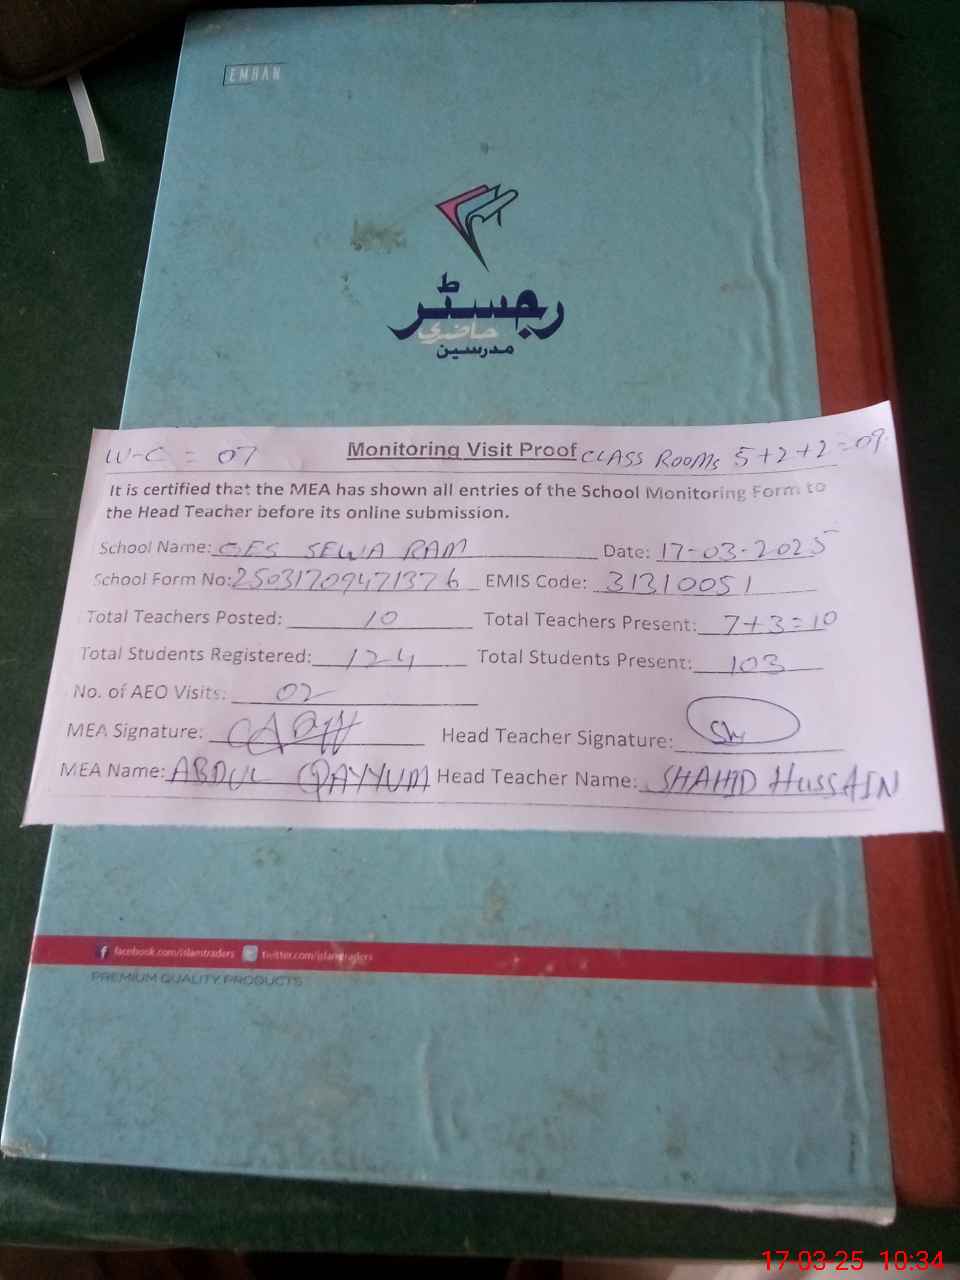 EMRAN
رجسٹر
حاضری
مدرسین
W-C = 07 Monitoring Visit Proof CLASS ROOMs 5+2+2=09
It is certified that the MEA has shown all entries of the School Monitoring Form to
the Head Teacher before its online submission.
School Name: GES SEWA RAM Date: 17-03-2025
School Form No: 25031709471376 EMIS Code: 31310051
Total Teachers Posted: 10 Total Teachers Present: 7+3=10
Total Students Registered: 124 Total Students Present: 103
No. of AEO Visits: 02
MEA Signature: Head Teacher Signature: Sh
MEA Name: ABDUL QAYYUM Head Teacher Name: SHAHID HUSSAIN
facebook.com/islamtraders twitter.com/islamtraders
PREMIUM QUALITY PRODUCTS
17-03-25 10:34